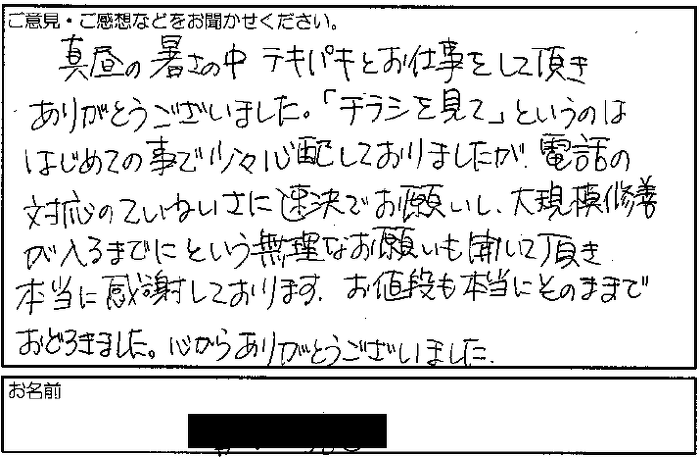 ご意見・ご感想などをお聞かせください。
真昼の暑さの中 テキパキとお仕事をして頂き
ありがとうございました。「チラシを見て」というのは
はじめての事で少々心配しておりましたが、電話の
対応のていねいさに速決でお願いし、大規模修善
が入るまでにという無理なお願いも聞いて頂き
本当に感謝しております。お値段も本当にそのままで
おどろきました。心からありがとうございました。
お名前